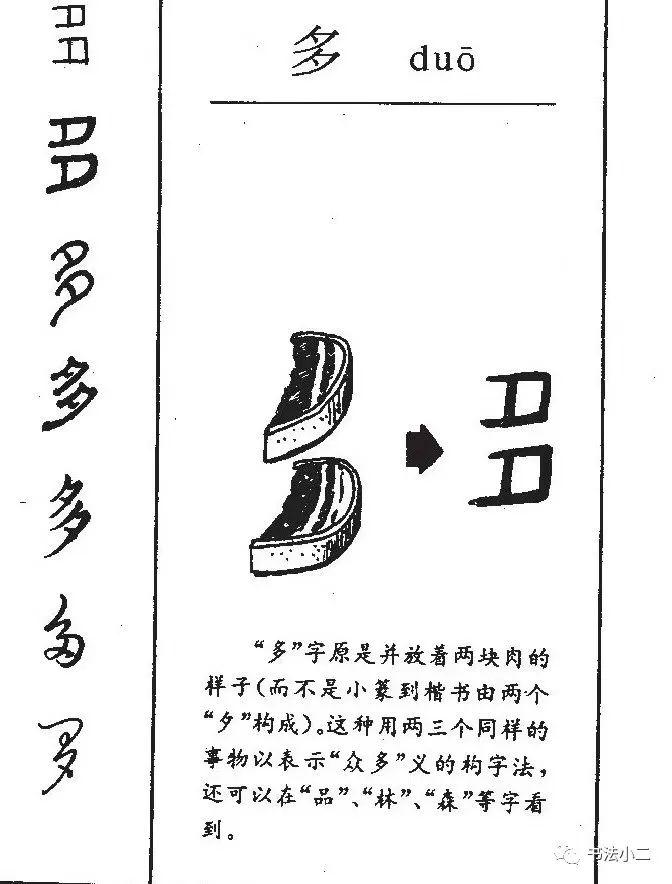 多 duō
“多”字原是并放着两块肉的
样子(而不是小篆到楷书由两个
“夕”构成)。这种用两三个同样的
事物以表示“众多”义的构字法,
还可以在“品”、“林”、“森”等字看
到。
多
多
多
多
多
书法小二